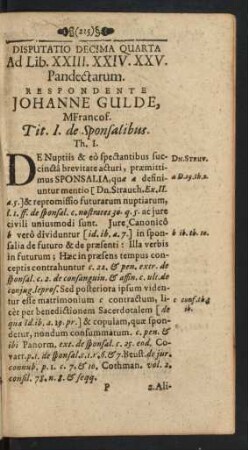 (215)
DISPUTATIO DECIMA QUARTA
Ad Lib. XXIII. XXIV. XXV.
Pandectarum.
RESPONDENTE
JOHANNE GULDE,
MFrancof.
Tit. I. de Sponsalibus.
Th. I.
DE Nuptiis & eò spectantibus suc-
cinctâ brevitate acturi, præmitti-
mus SPONSALIA, quæ a defini-
untur mentio [Dn. Strauch. Ex. II.
a. 5.] & repromissio futurarum nuptiarum,
l. 1. ff. de sponsal. c. nostrates 30. q. 5. ac jure
civili uniusmodi sunt. Jure Canonicô
b verò dividuntur [id. ib. a. 7.] in spon-
salia de futuro & de præsenti: Illa verbis
in futurum; Hæc in præsens tempus con-
ceptis contrahuntur c. 22. & pen. extr. de
sponsal. c. 2. de consanguin. & affin. c. ult. de
conjug. lepros. Sed posteriora ipsum viden-
tur esse matrimonium c contractum, li-
cèt per benedictionem Sacerdotalem [de
qua id. ib. a. 19. pr.] & copulam, quæ spon-
detur, nondum consummatum. c. pen. &
ibi Panorm. ext. de sponsal. c. 25. eod. Co-
varr. p. 1. de sponsal. c. 1. n. 6. & 7. Beust. de jur.
connub. p. 1. c. 7. & 10. Cothman. vol. 2.
consil. 78. n. 8. & seqq.
P
2. Ali-
DN. STRUV.
a D. 29. th. 2.
b ib. th. 10.
c conf. th. 
ib.